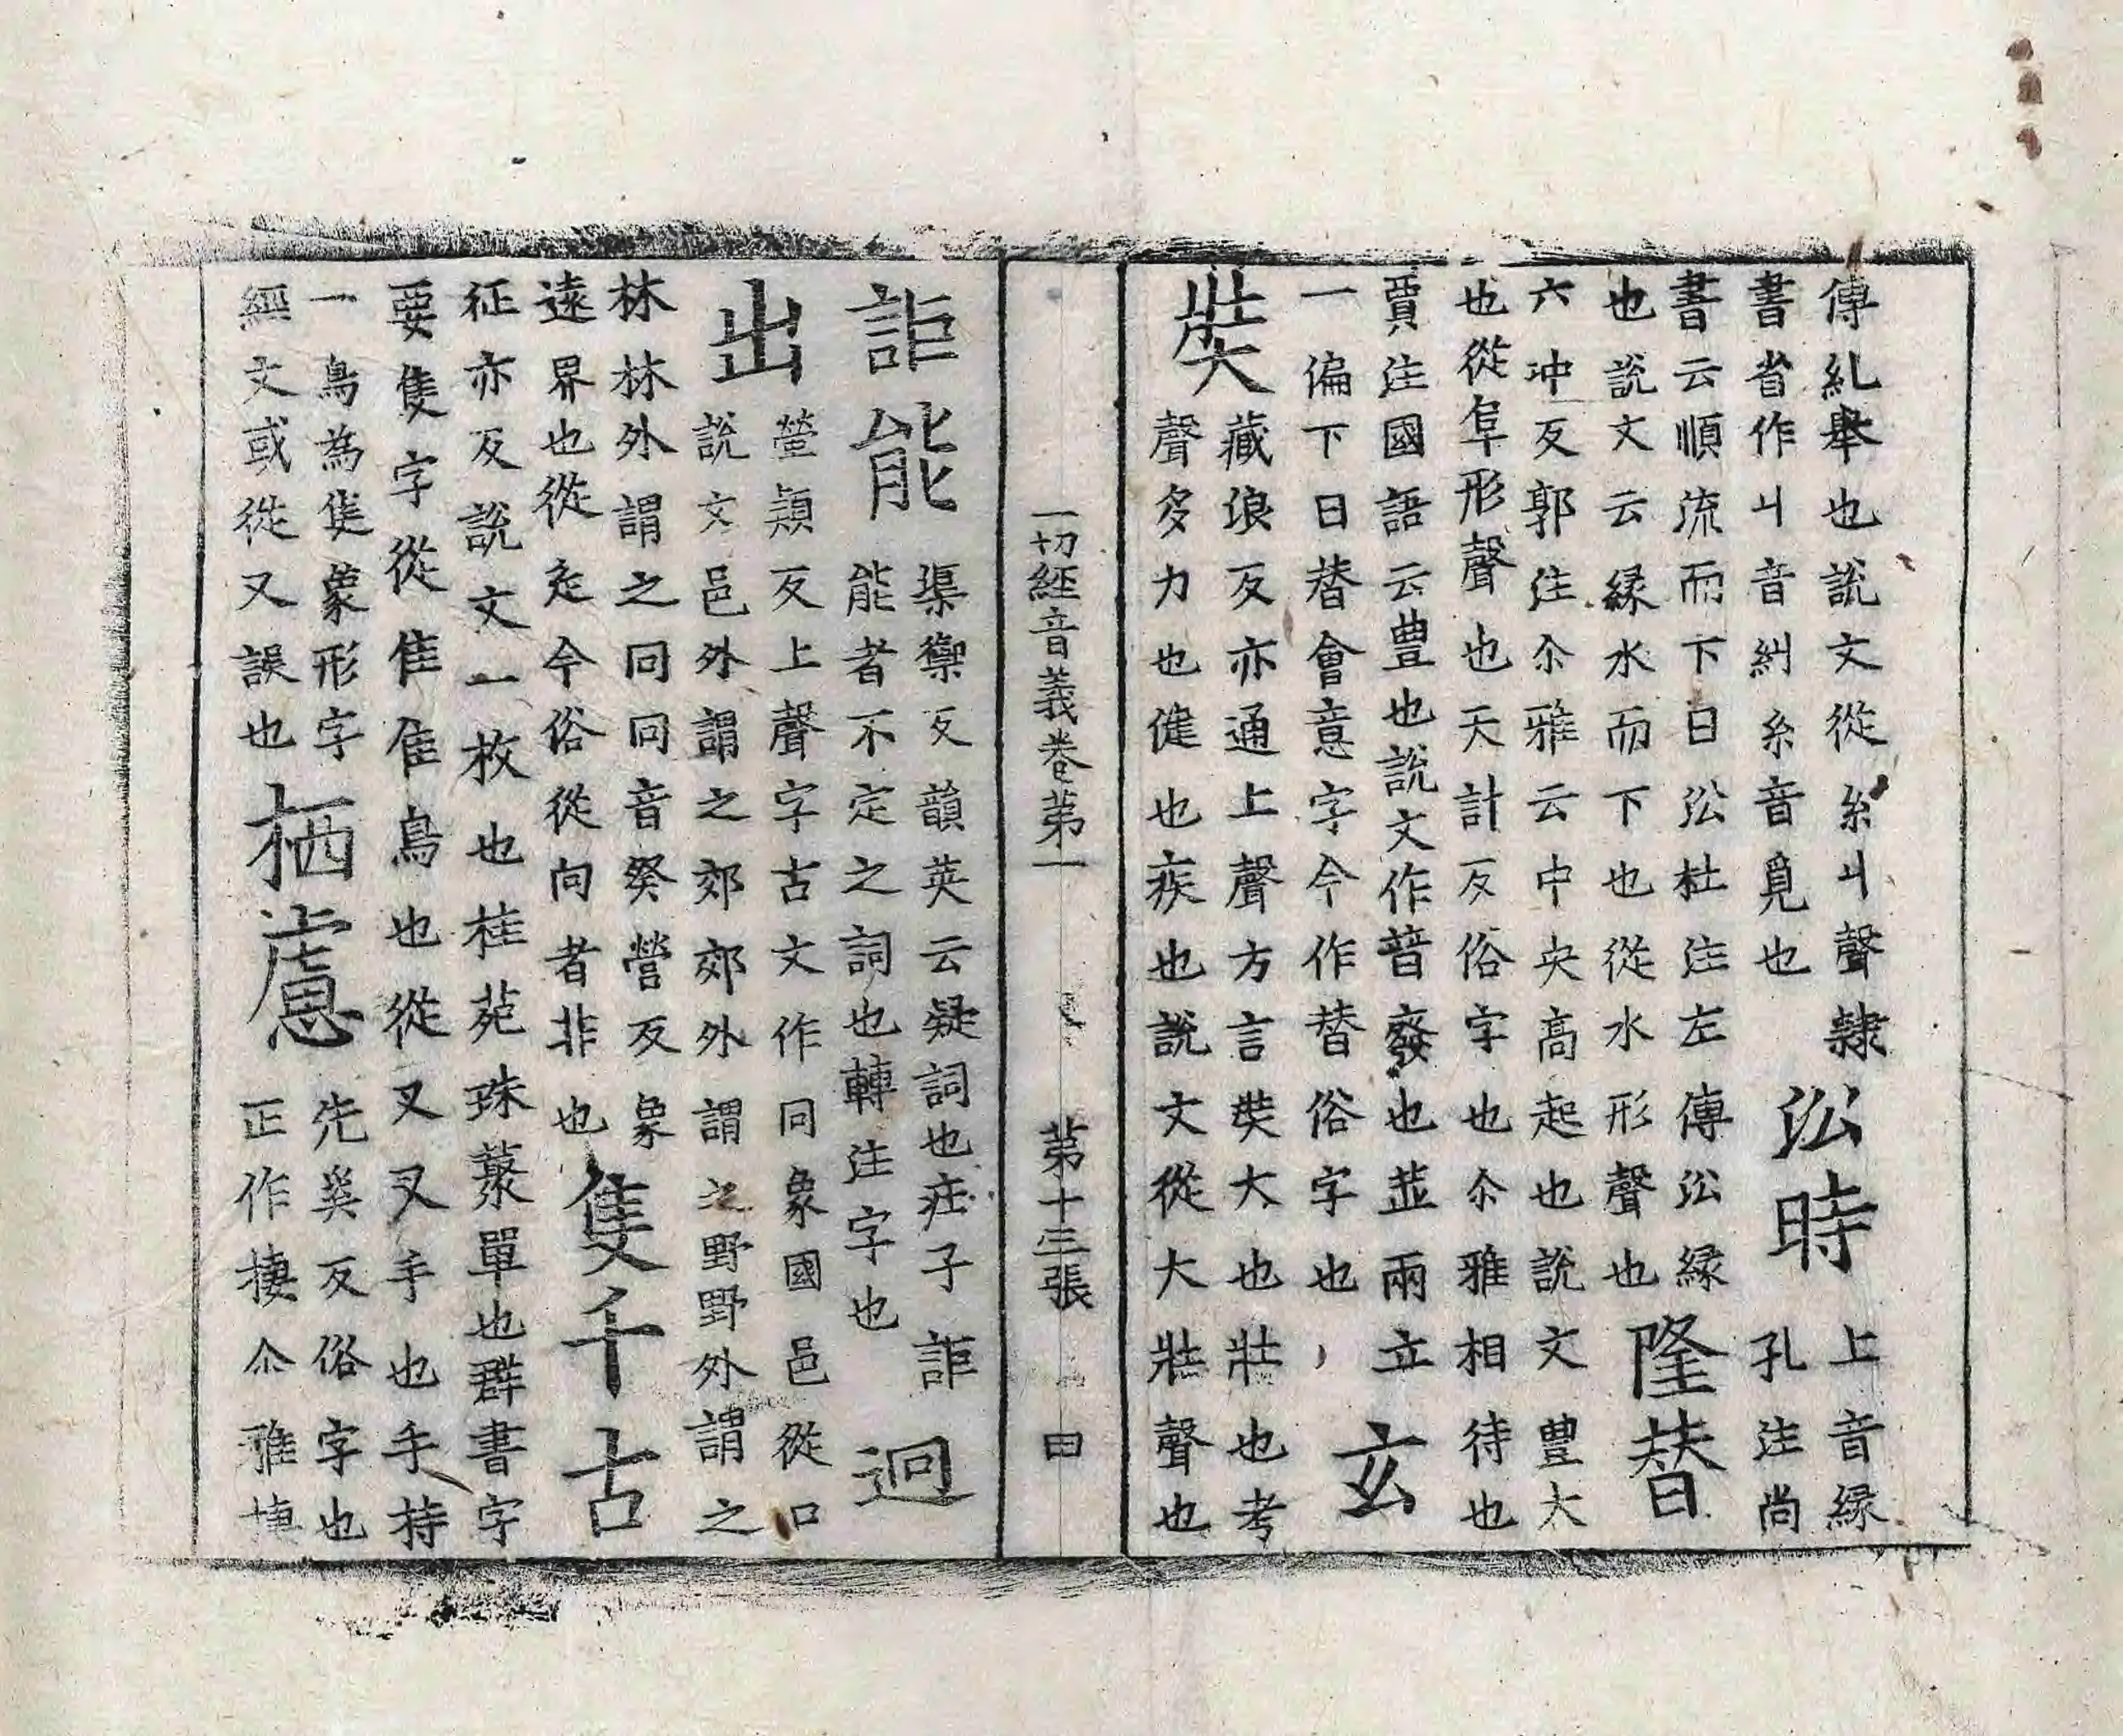 傳糺舉也說文從糸丩聲隸
書省作丩音糾糸音覓也
㳂時
上音緣
孔注尚
書云順流而下曰㳂杜注左傳㳂緣
也說文云緣水而下也從水形聲也
隆替
六冲反郭注尒雅云中央高起也說文豊大
也從阜形聲也天計反俗字也尒雅相待也
賈注國語云豊也說文作暜癈也並兩立
一偏下曰替會意字今作替俗字也
玄
奘
藏浪反亦通上聲方言奘大也壯也考
聲多力也健也疾也說文從大壯聲也
一切經音義卷苐一 苐十三張 曰
詎能
渠禦反韻英云疑詞也庄子詎
能者不定之詞也轉注字也
迥
出
營熲反上聲字古文作冋象國邑從口
說文邑外謂之郊郊外謂之野野外謂之
林林外謂之冋冋音癸營反象
遠界也從辵今俗從向者非也
隻千古
征亦反說文一枚也桂菀珠藂單也群書字
要隻字從隹隹鳥也從又又手也手持
一鳥為隻象形字
經文或從又誤也
栖慮
先奚反俗字也
正作棲尒雅棲